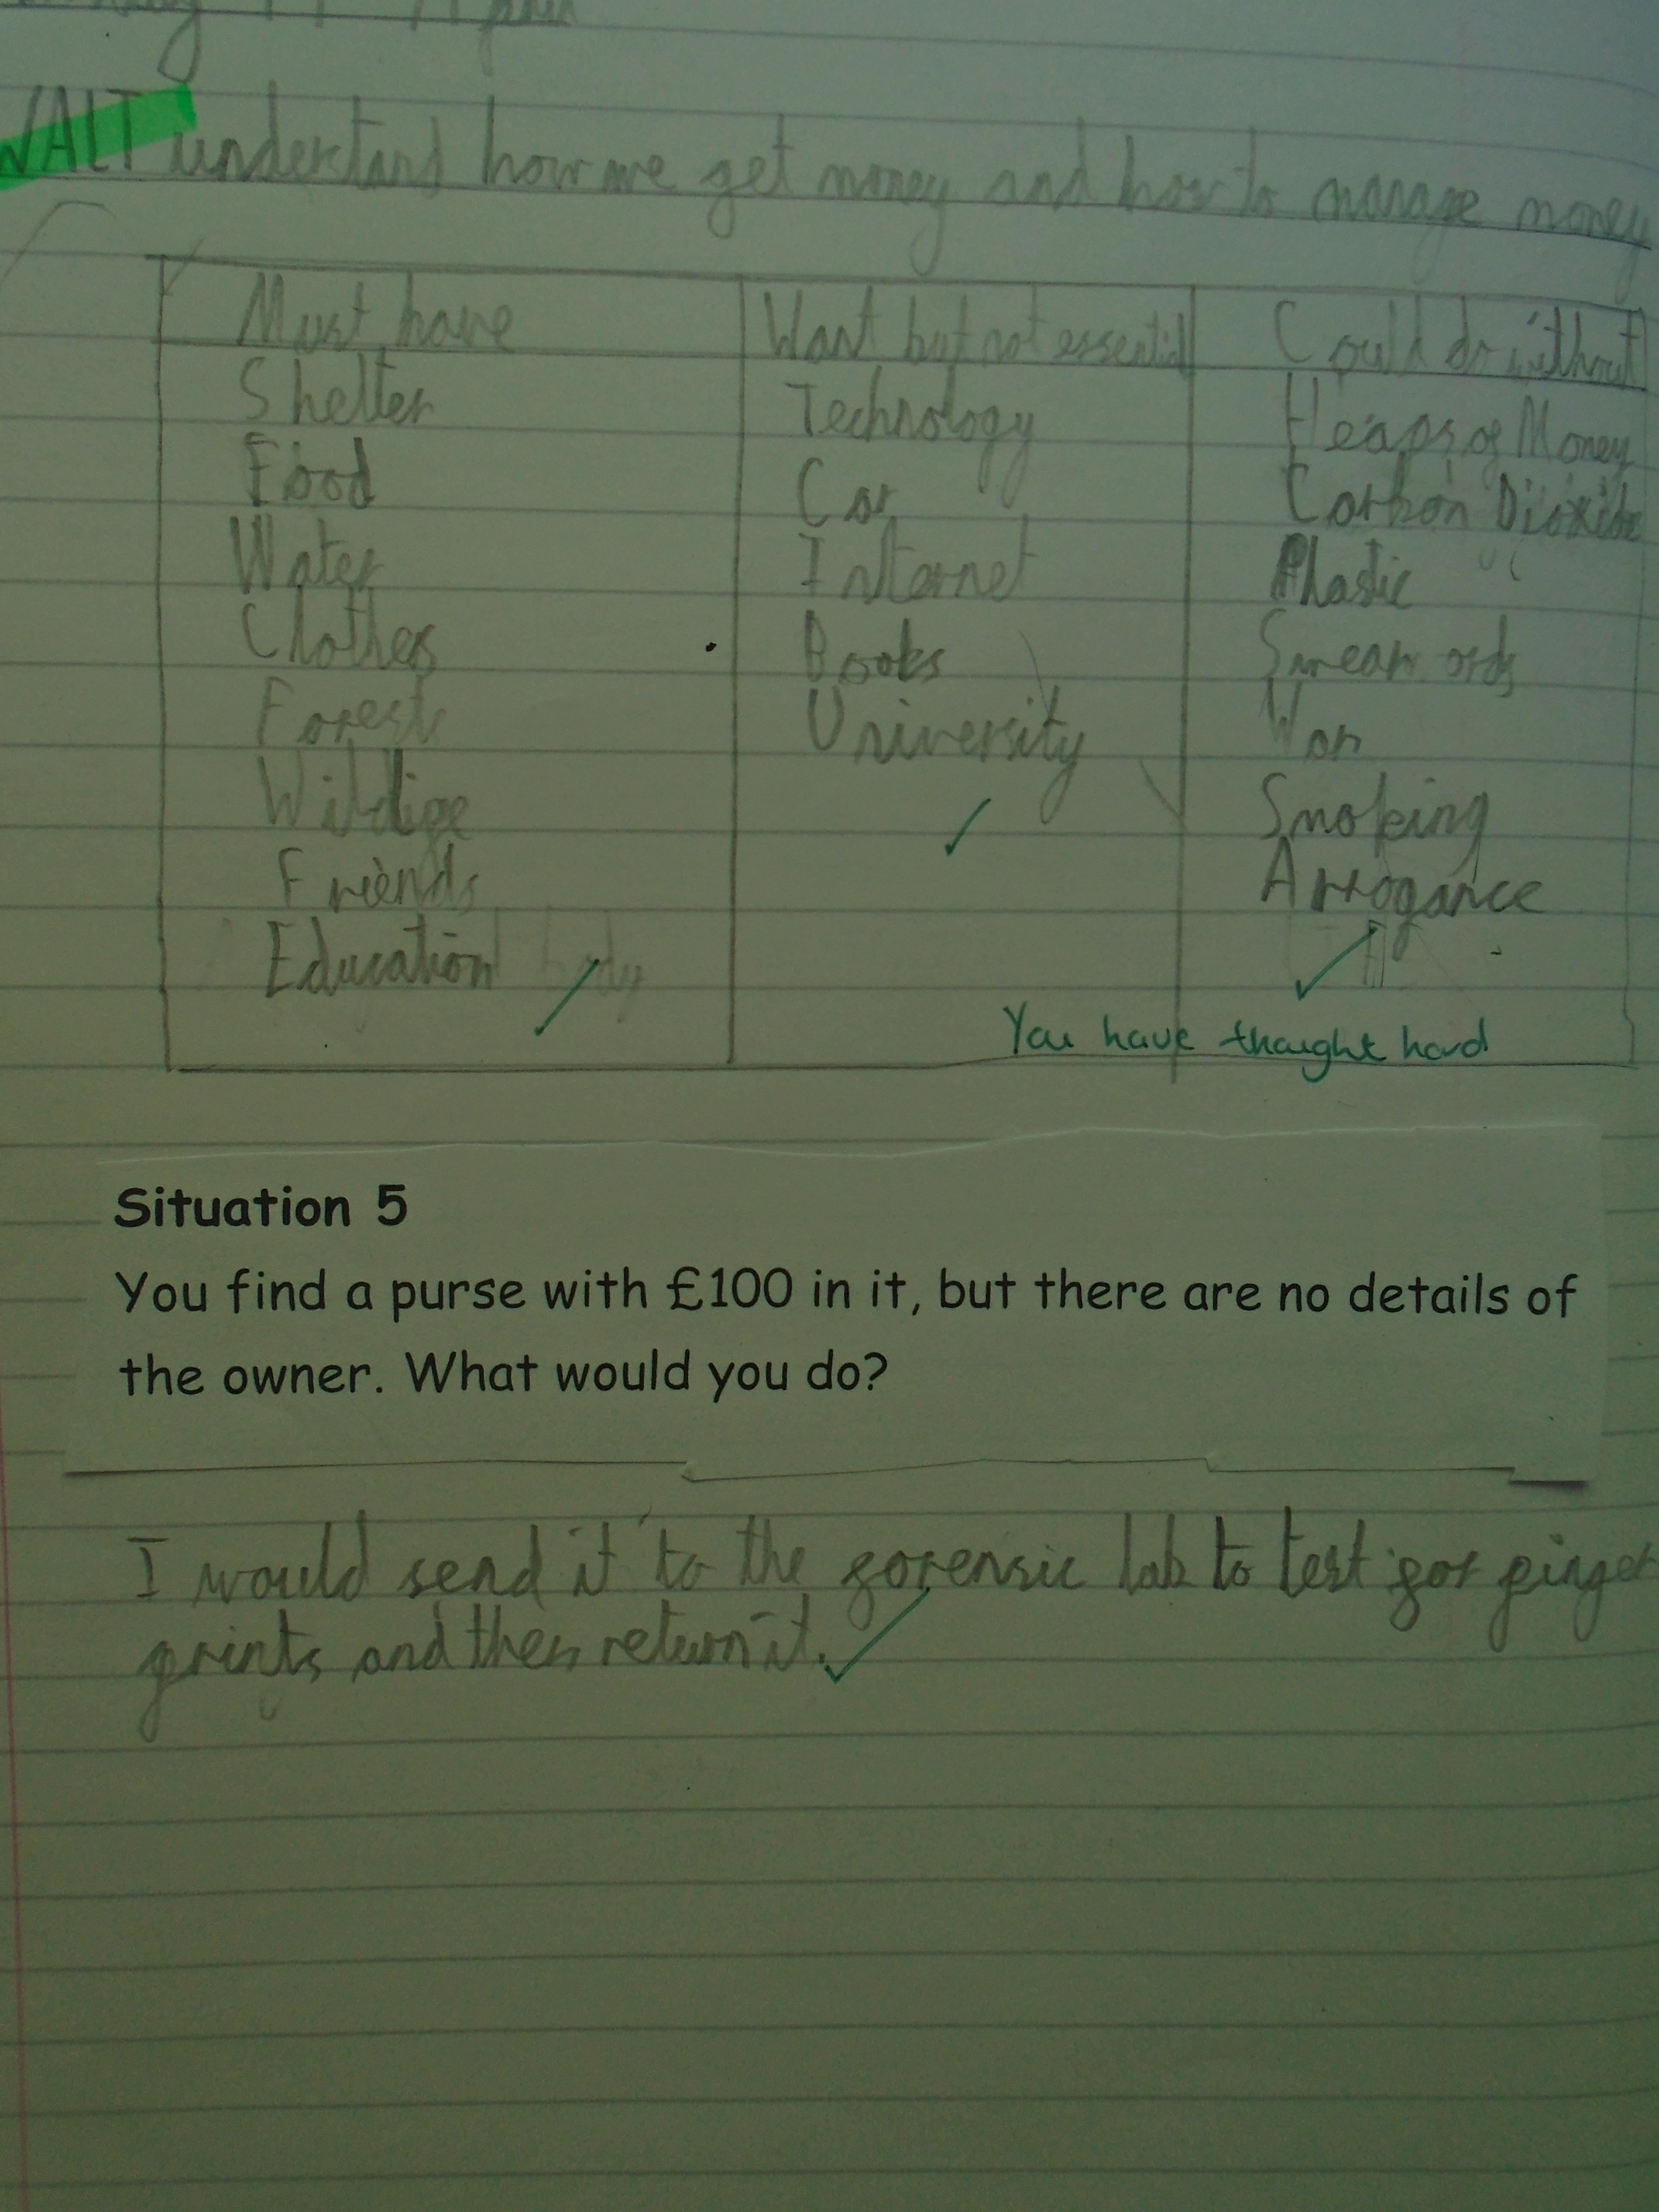 WALT understand how we get money and how to manage money
Must have	Want but not essential	Could do without
Shelter	Technology	Heaps of Money
Food	Car	Carbon Dioxide
Water	Internet	Plastic
Clothes	Books	Swear words
Forests	University	War
Wildlife	Smoking
Friends	Arrogance
Education
You have thought hard
Situation 5
You find a purse with £100 in it, but there are no details of
the owner. What would you do?
I would send it to the forensic lab to test for finger
prints and then return it.